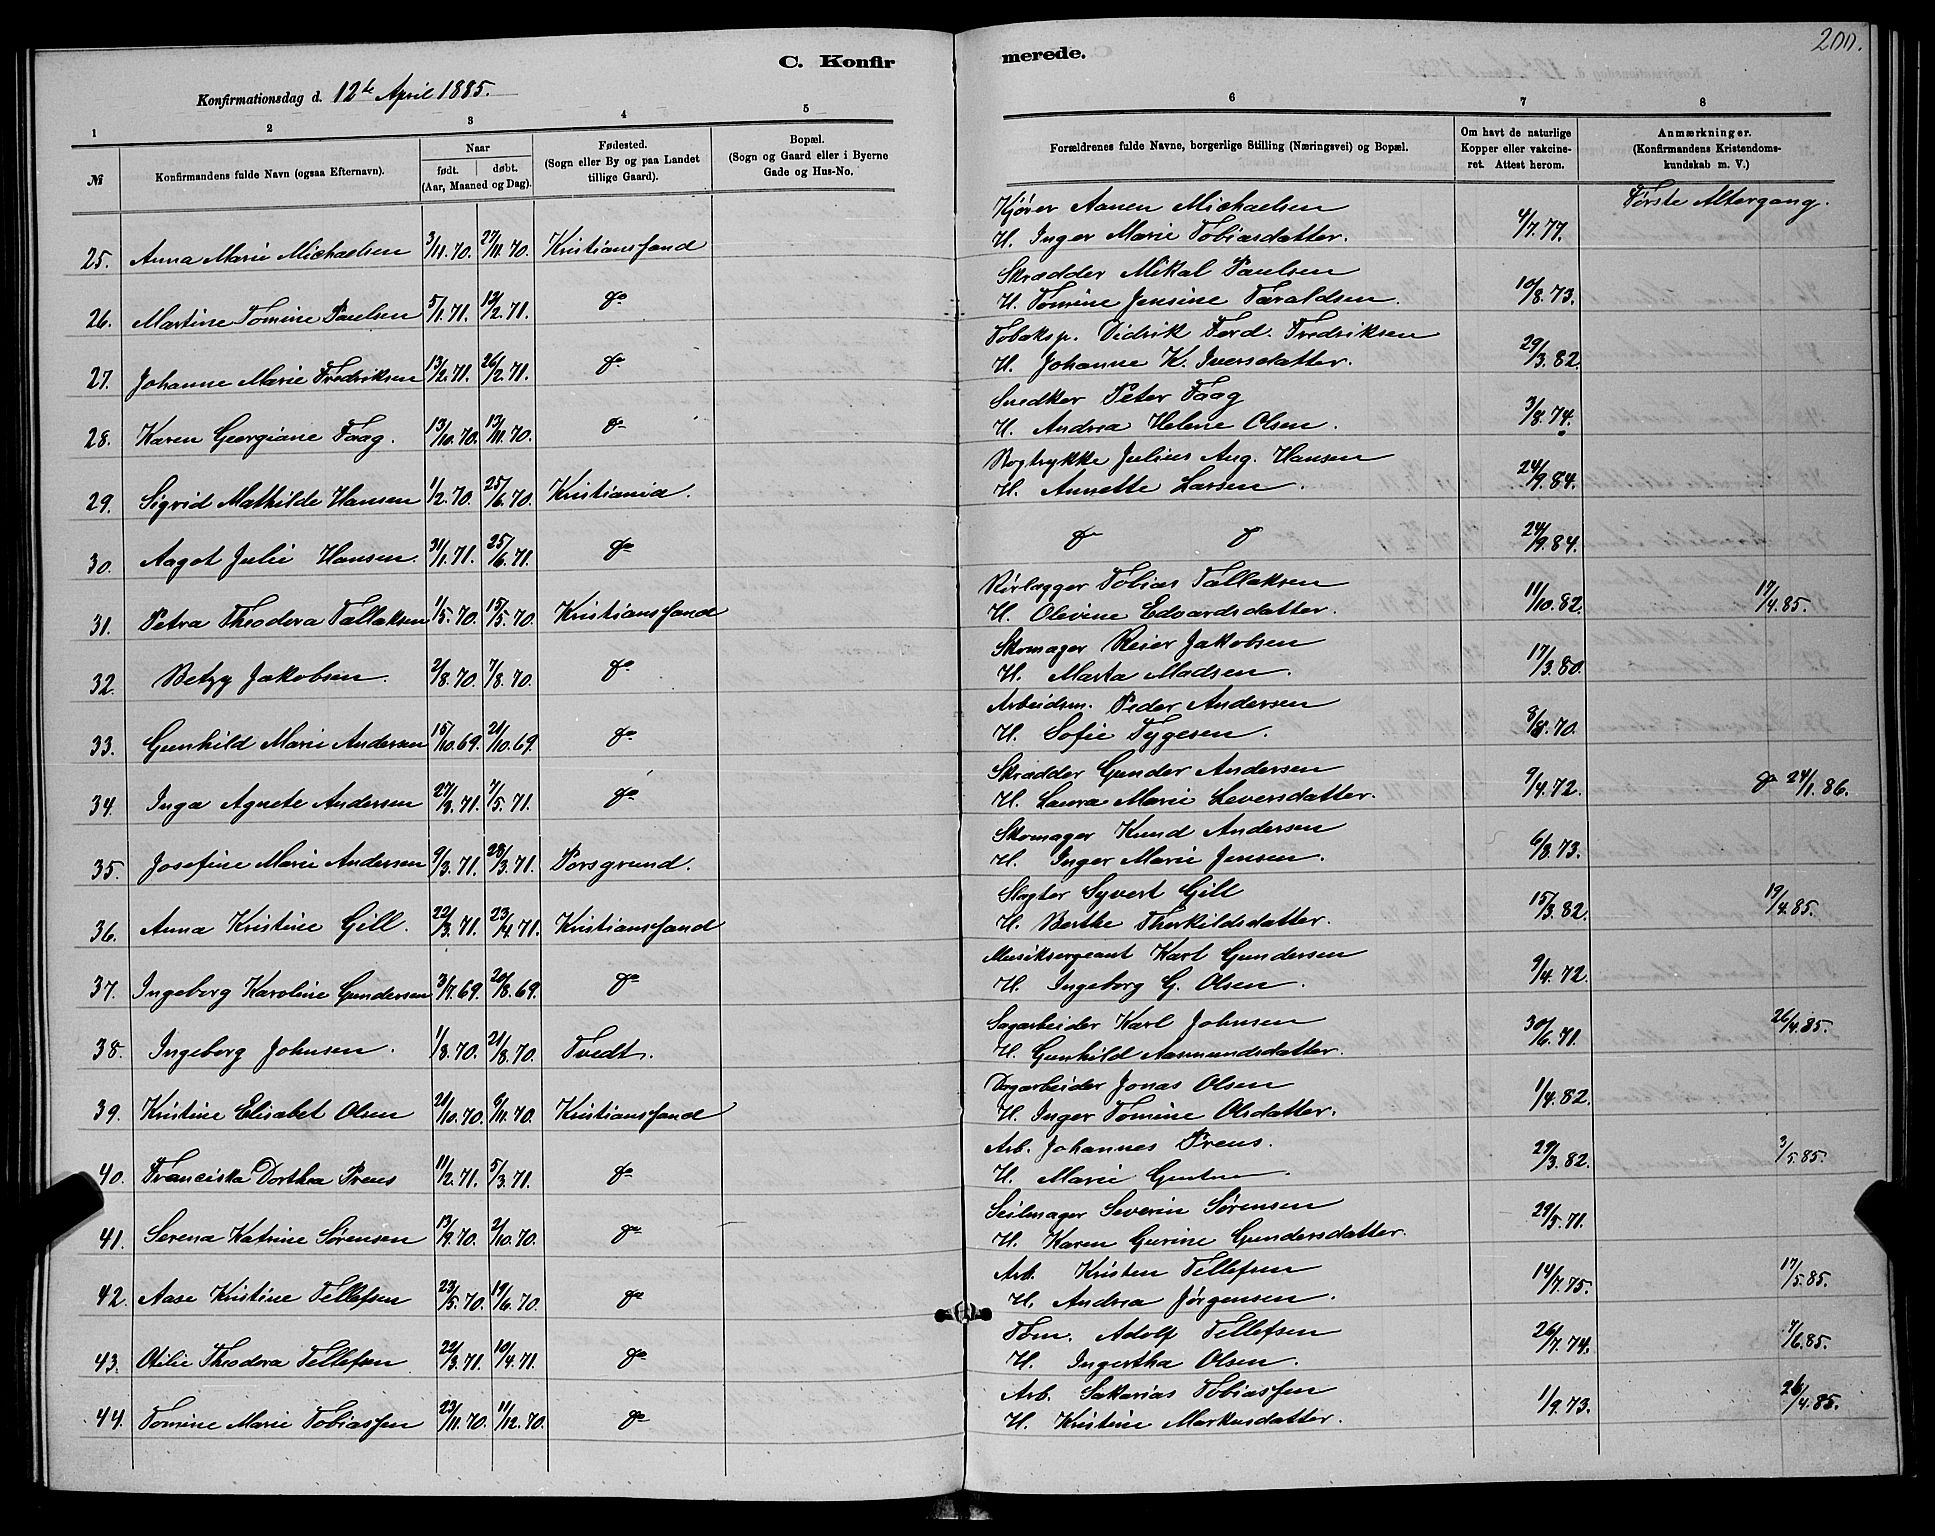 200.
C. Konfirmerede.
Konfirmationsdag d. 12te April 1885.
1 2 3 4 5 6 7 8
№ Konfirmandens fulde Navn (ogsaa Efternavn). Naar født. døbt. (Aar, Maaned og Dag). Fødested. (Sogn eller By og paa Landet tillige Gaard). Bopæl. (Sogn og Gaard eller i Byerne Gade og Hus-No. Forældrenes fulde Navne, borgerlige Stilling (Næringsvei) og Bopæl. Om havt de naturlige Kopper eller vakcineret. Attest herom. Anmærkninger. (Konfirmandens Kristendomskundskab m. V.)
Første Altergang.
25. Anna Marie Michaelsen 3/11.70. 27/11.70. Kristianssand Kjører Aanen Michaelsen 4/7.77.
H. Inger Marie Tobiasdatter.
26. Martine Tomine Paulsen 5/1.71. 12/2.71. do Skrædder Mikal Paulsen 10/8.73.
H. Tomine Jensine Taraldsen.
27. Johanne Marie Fredriksen 13/2.71. 26/2.71. do Tobaksp. Didrik Ferd. Fredriksen 29/3.82.
H. Johanne K. Iversdatter.
28. Karen Georgiane Faag. 13/10.70. 13/11.70. do Snedker Peter Faag 3/8.74.
H. Andrea Helene Olsen.
29. Sigrid Mathilde Hansen 1/2.70. 25/6.70. Kristiania. Bogtrykke Julius Aug. Hansen 24/9.84.
H. Annette Larsen.
30. Aagot Julie Hansen. 31/1.71. 25/6.71. do do do 24/9.84.
31. Petra Theodora Tallaksen 1/5.70. 15/5.70. Kristianssand Rørlægger Tobias Tallaksen 11/10.82. 17/4.85.
H. Olevine Edvardsdatter.
32. Betzy Jakobsen. 2/8.70. 7/8.70. do Skomager Reier Jakobsen 17/3.80.
H. Marta Madsen.
33. Gunhild Marie Andersen 15/10.69. 21/10.69. do Arbeidsm. Peder Andersen 8/8.70.
H. Sofie Tygesen.
34. Inga Agnete Andersen 27/3.71. 7/5.71. do Skrædder Gunder Andersen 9/4.72. do 24/1.86.
H. Laura Marie Leversdatter.
35. Josefine Marie Andersen 9/3.71. 28/3.71. Porsgrund. Skomager Knud Andersen 6/8.73.
H. Inger Marie Jensen.
36. Anna Kristine Gill. 22/3.71. 23/4.71. Kristianssand Slagter Syvert Gill 15/3.82. 19/4.85.
H. Berthe Therkildsdatter.
37. Ingeborg Karoline Gundersen 3/7.69. 20/8.69. do Musiksergeant Karl Gundersen 9/4.72.
H. Ingeborg G. Olsen.
38. Ingeborg Johnsen. 1/8.70. 21/8.70. Tvedt. Sagarbeider Karl Johnsen 30/6.71. 26/4.85.
H. Gunhild Aasmundsdatter.
39. Kristine Elisabet Olsen 21/10.70. 6/11.70. Kristianssand Dagarbeider Jonas Olsen 1/4.82.
H. Inger Tomine Olsdatter.
40. Franciska Dorthea Preus 11/2.71. 5/3.71. do Arb. Johannes Preus. 29/3.82. 3/5.85.
H. Marie
41. Serena Katrine Sørensen 13/9.70. 2/10.70. do Seilmager Severin Sørensen 29/5.71.
H. Karen Gurine Gundersdatter.
42. Aase Kristine Tellefsen 23/5.70. 19/6.70. do Arb. Kristen Tellefsen 14/7.75. 17/5.85.
H. Andrea Jørgensen.
43. Otilie Theodora Tellefsen 22/3.71. 10/4.71. do Tøm. Adolf Tellefsen 26/7.74. 7/6.85.
H. Ingertha Olsen.
44. Tomine Marie Tobiassen 23/11.70. 11/12.70. do Arb. Sakarias Tobiassen 1/9.73. 26/4.85.
H. Kristine Markusdatter.